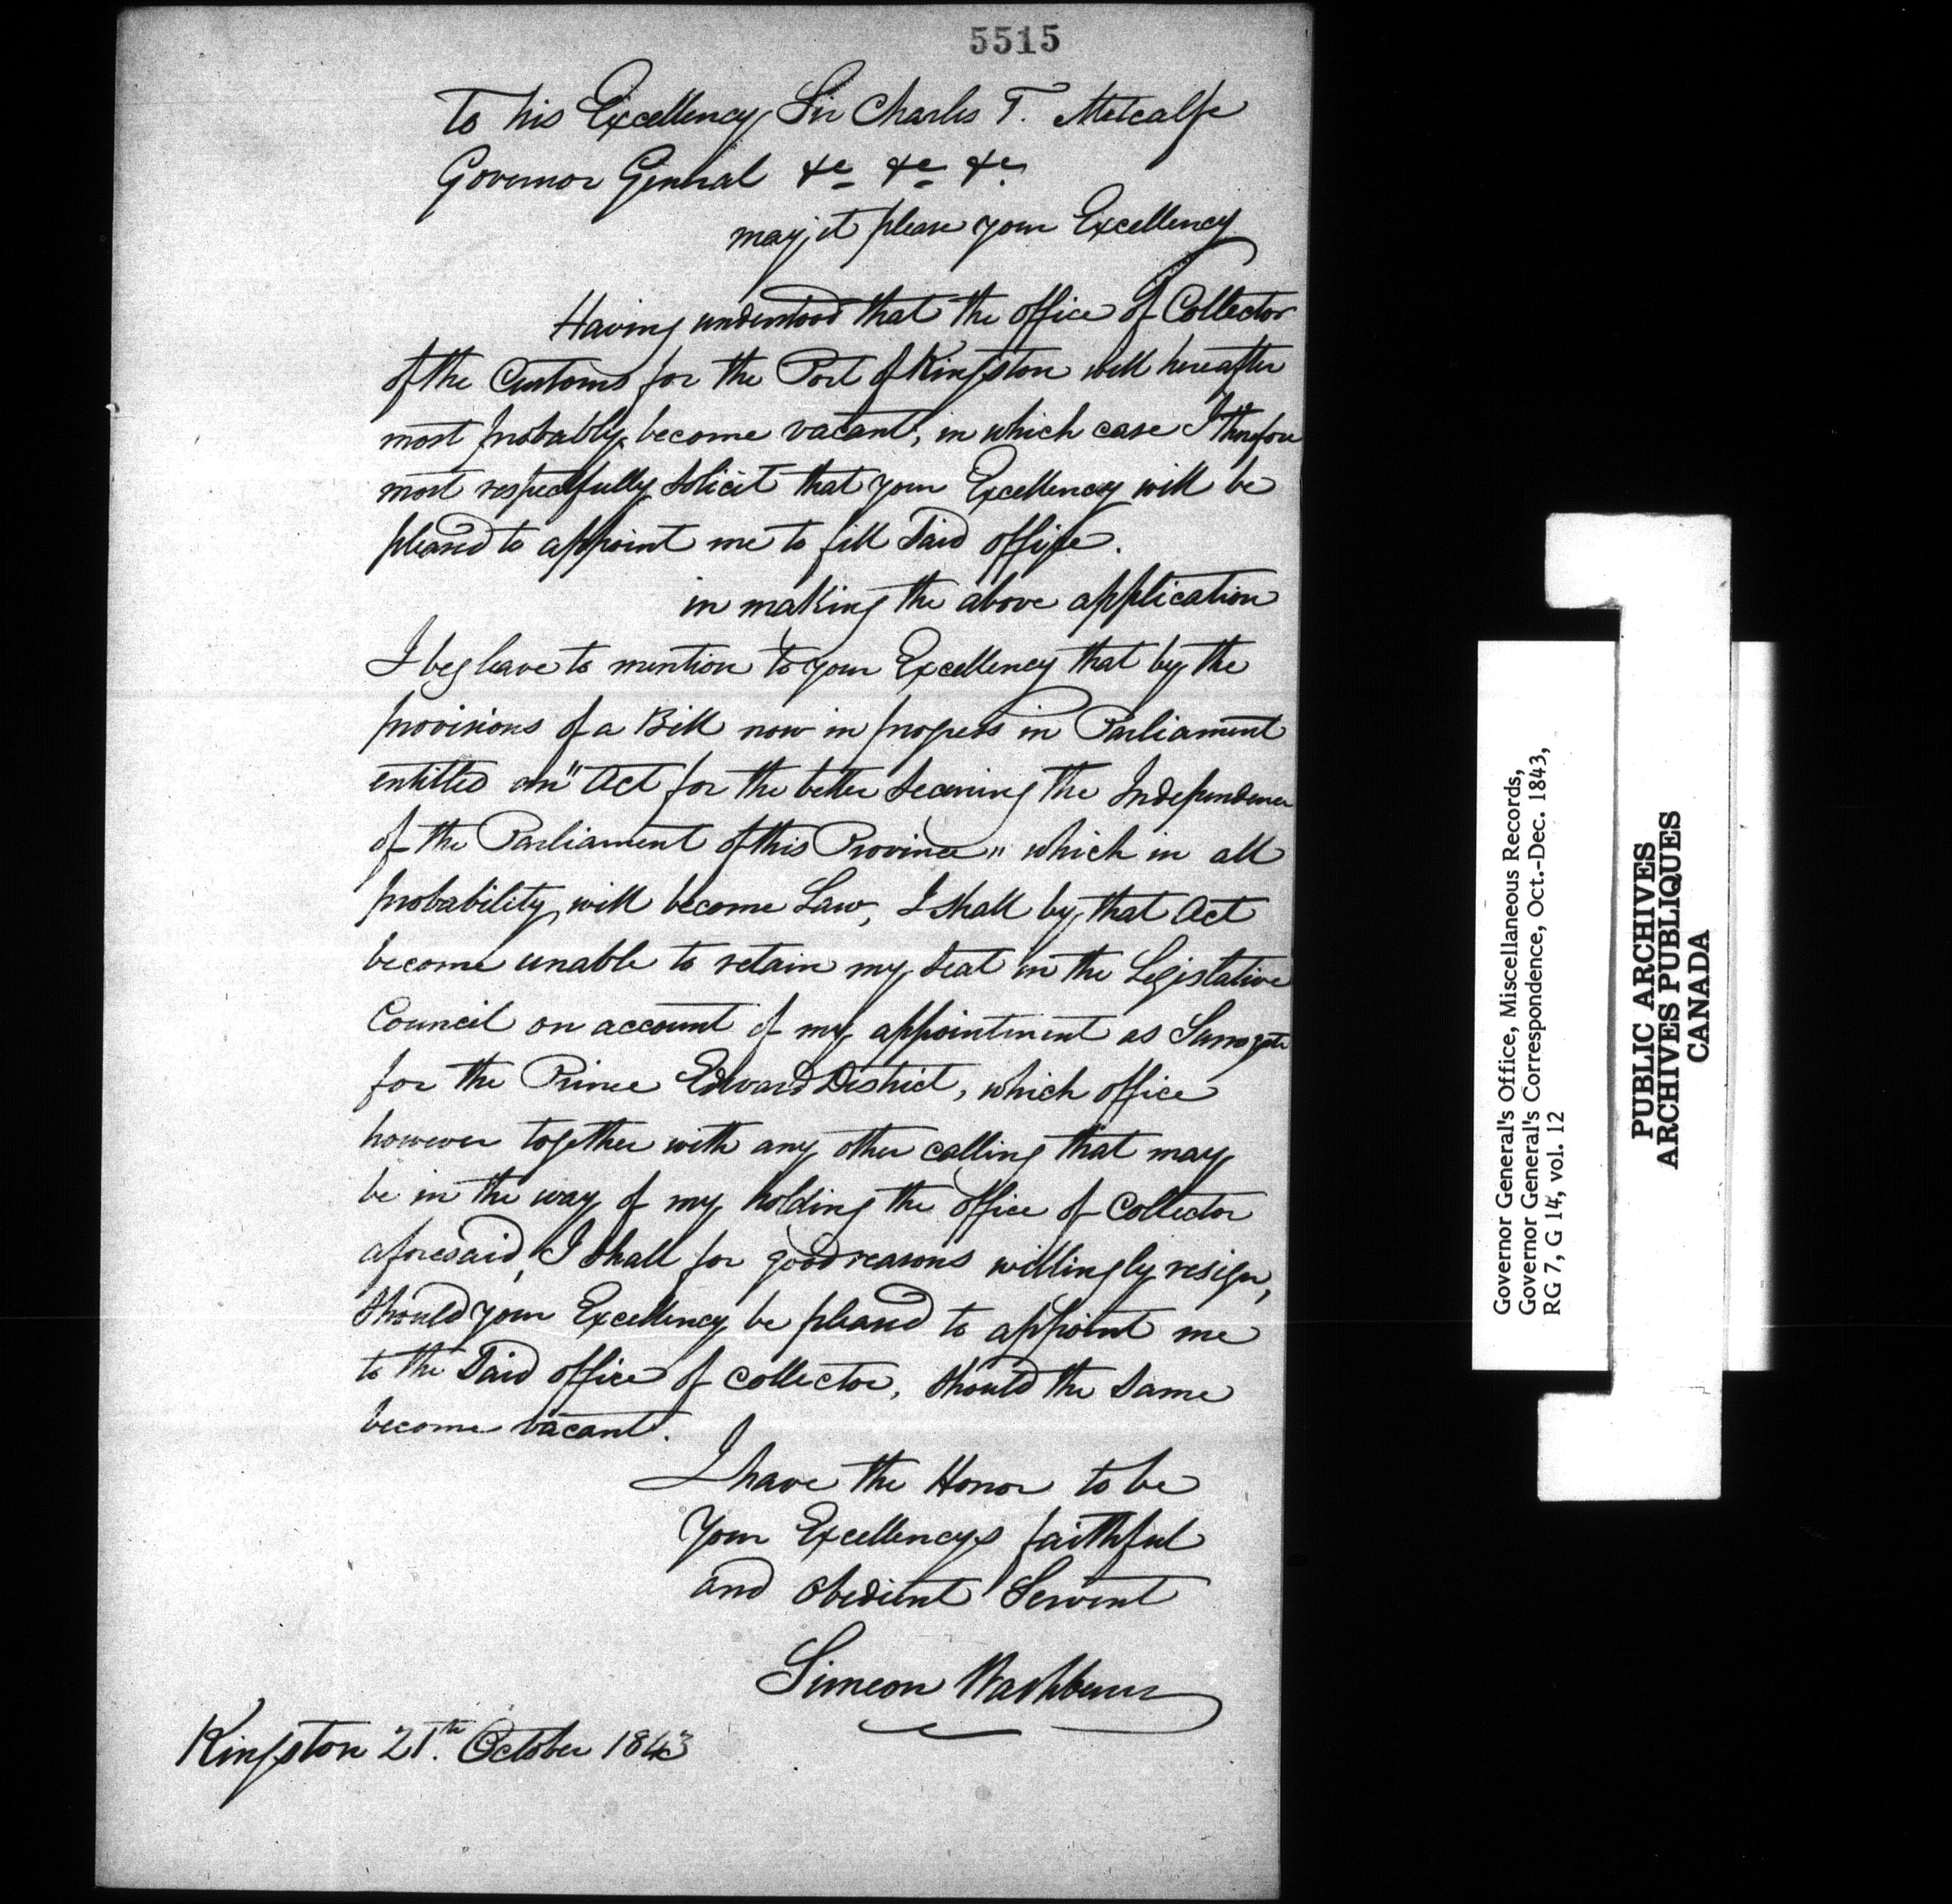 5515
To his Excellency Sir Charles T. Metcalfe
Governor General &c &c &c
may it please your Excellency
Having understood that the office of Collector
of the Customs for the Port of Kingston will hereafter
most probably become vacant, in which case I therefore
most respectfully solicit that your Excellency will be
pleased to appoint me to fill Said office.
in making the above application
I beg leave to mention to your Excellency that by the
provisions of a Bill now in progress in Parliament
entitled an "Act for the better Securing the Independence
of the Parliament of this Province" which in all
probability will become Law, I shall by that Act
become unable to retain my Seat in the Legislative
Council on account of my appointment as Surrogate
for the Prince Edward District, which office
however together with any other calling that may
be in the way of my holding the office of Collector
aforesaid, I shall for good reasons willingly resign,
Should your Excellency be pleased to appoint me
to the Said office of collector, should the Same
become vacant.
I have the Honor to be
Your Excellencys faithful
and obedient Servent
Simeon Washburn
Kingston 21th. October 1843
Governor General's Office, Miscellaneous Records,
Governor General's Correspondence, Oct.-Dec. 1843,
RG 7, G 14, vol. 12
PUBLIC ARCHIVES
ARCHIVES PUBLIQUES
CANADA